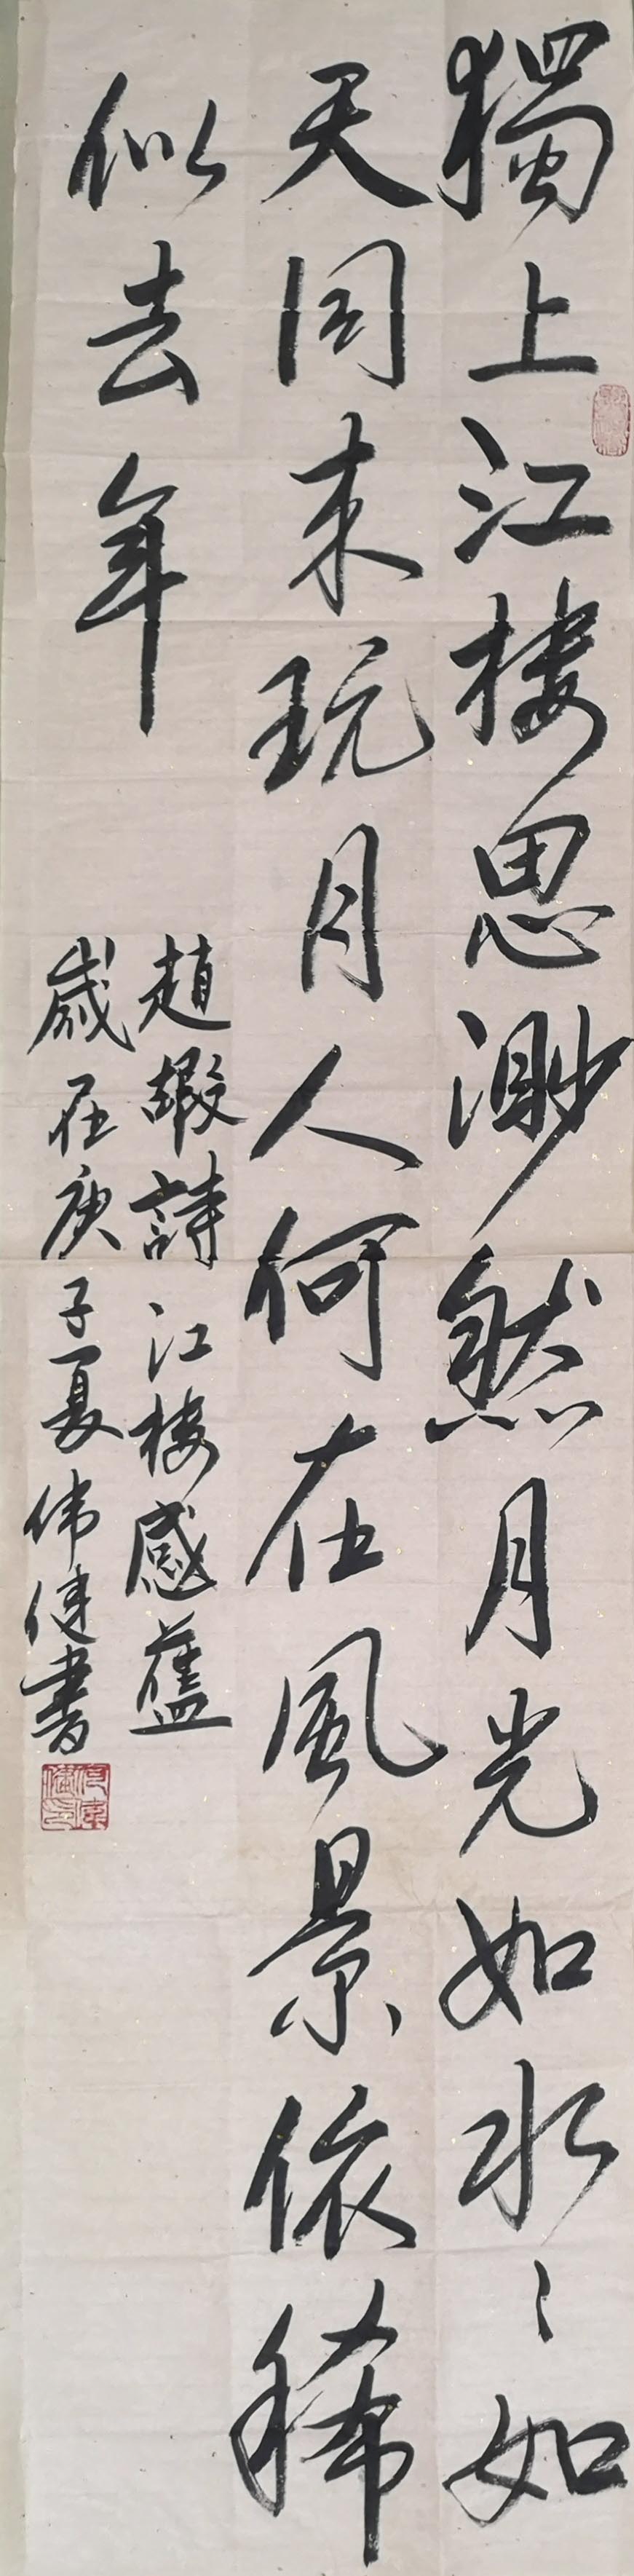 獨上江楼思渺然月光如水〻如
天同来玩月人何在風景依稀
似去年
趙嘏詩江楼感舊
歲在庚子夏伟健書